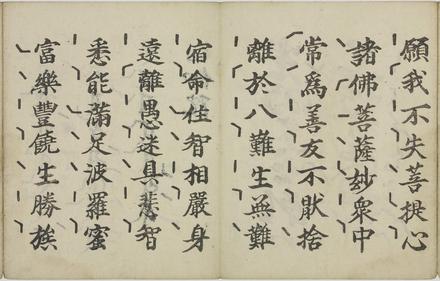 願我不失菩提心
諸佛菩薩妙衆中
常爲善友不猒捨
離於八難生無難
宿命住智相嚴身
遠離愚迷具悲智
悉能滿足波羅蜜
富樂豐饒生勝族